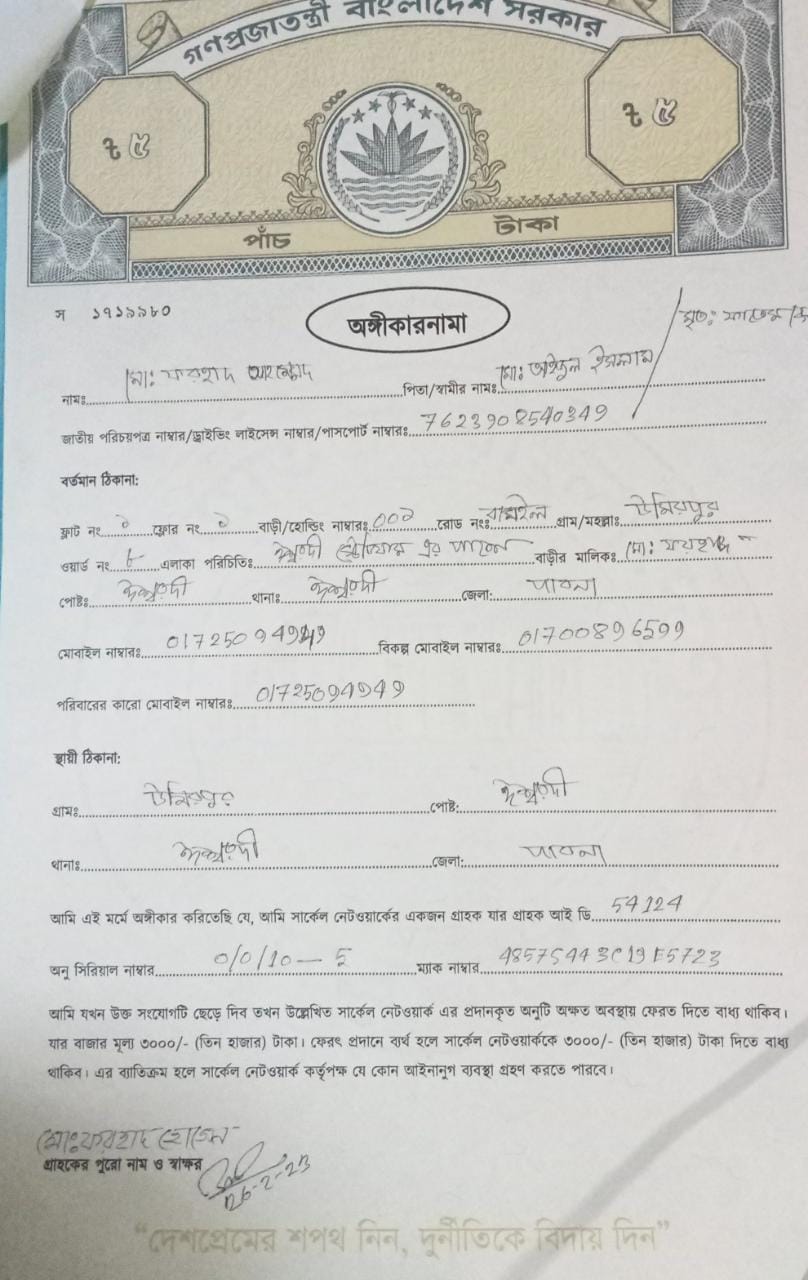 গণপ্রজাতন্ত্রী বাংলাদেশ সরকার
৳ ৫ ৳ ৫
পাঁচ টাকা
স ১৭১৯৯৮০
অঙ্গীকারনামা
মৃত:
নামঃ মো: ফরহাদ পিতা/স্বামীর নামঃ মো: ইসলাম
জাতীয় পরিচয়পত্র নাম্বার/ড্রাইভিং লাইসেন্স নাম্বার/পাসপোর্ট নাম্বারঃ 7623908540349
বর্তমান ঠিকানা:
ফ্লাট নং ফ্লোর নং বাড়ী/হোল্ডিং নাম্বারঃ রোড নংঃ গ্রাম/মহল্লাঃ
ওয়ার্ড নং ৮ এলাকা পরিচিতিঃ ঈশ্বরদী এর পাশে বাড়ীর মালিকঃ মো: ফরহাদ
পোষ্টঃ ঈশ্বরদী থানাঃ ঈশ্বরদী জেলা: পাবনা
মোবাইল নাম্বারঃ বিকল্প মোবাইল নাম্বারঃ 01700896599
পরিবারের কারো মোবাইল নাম্বারঃ 01725094949
স্থায়ী ঠিকানা:
গ্রামঃ পোষ্ট: ঈশ্বরদী
থানাঃ ঈশ্বরদী জেলা: পাবনা
আমি এই মর্মে অঙ্গীকার করিতেছি যে, আমি সার্কেল নেটওয়ার্কের একজন গ্রাহক যার গ্রাহক আই ডি 54124
অনু সিরিয়াল নাম্বার 0/0/10 — 5 ম্যাক নাম্বার 48575443C19E5723
আমি যখন উক্ত সংযোগটি ছেড়ে দিব তখন উল্লেখিত সার্কেল নেটওয়ার্ক এর প্রদানকৃত অনুটি অক্ষত অবস্থায় ফেরত দিতে বাধ্য থাকিব।
যার বাজার মূল্য ৩০০০/- (তিন হাজার) টাকা। ফেরৎ প্রদানে ব্যর্থ হলে সার্কেল নেটওয়ার্ককে ৩০০০/- (তিন হাজার) টাকা দিতে বাধ্য
থাকিব। এর ব্যতিক্রম হলে সার্কেল নেটওয়ার্ক কর্তৃপক্ষ যে কোন আইনানুগ ব্যবস্থা গ্রহণ করতে পারবে।
মোঃ ফরহাদ হোসেন
গ্রাহকের পুরো নাম ও স্বাক্ষর
26-2-23
“দেশপ্রেমের শপথ নিন, দুর্নীতিকে বিদায় দিন”